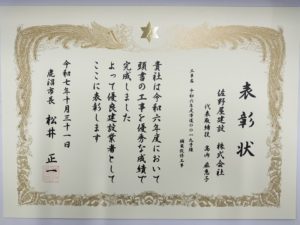 表彰状
佐野屋建設 株式会社
代表取締役
工事名 令和六年度
貴社は令和六年度において
頭書の工事を優秀な成績で
完成しました
よって優良建設業者として
ここに表彰します
令和七年十月三十一日
鹿沼市長 松井 正一